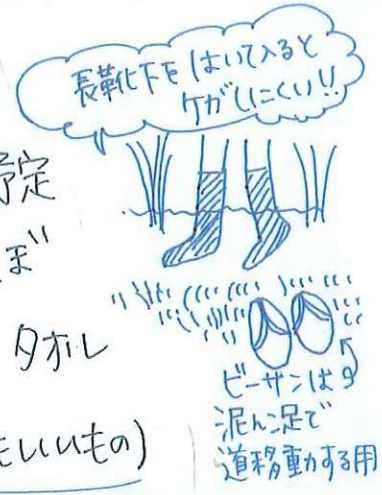 長靴下をはいて入ると
ケガしにくい!!
予定
ぼ"
タオル
もいいもの)
ビーサンは
泥ん足で
道移動する用